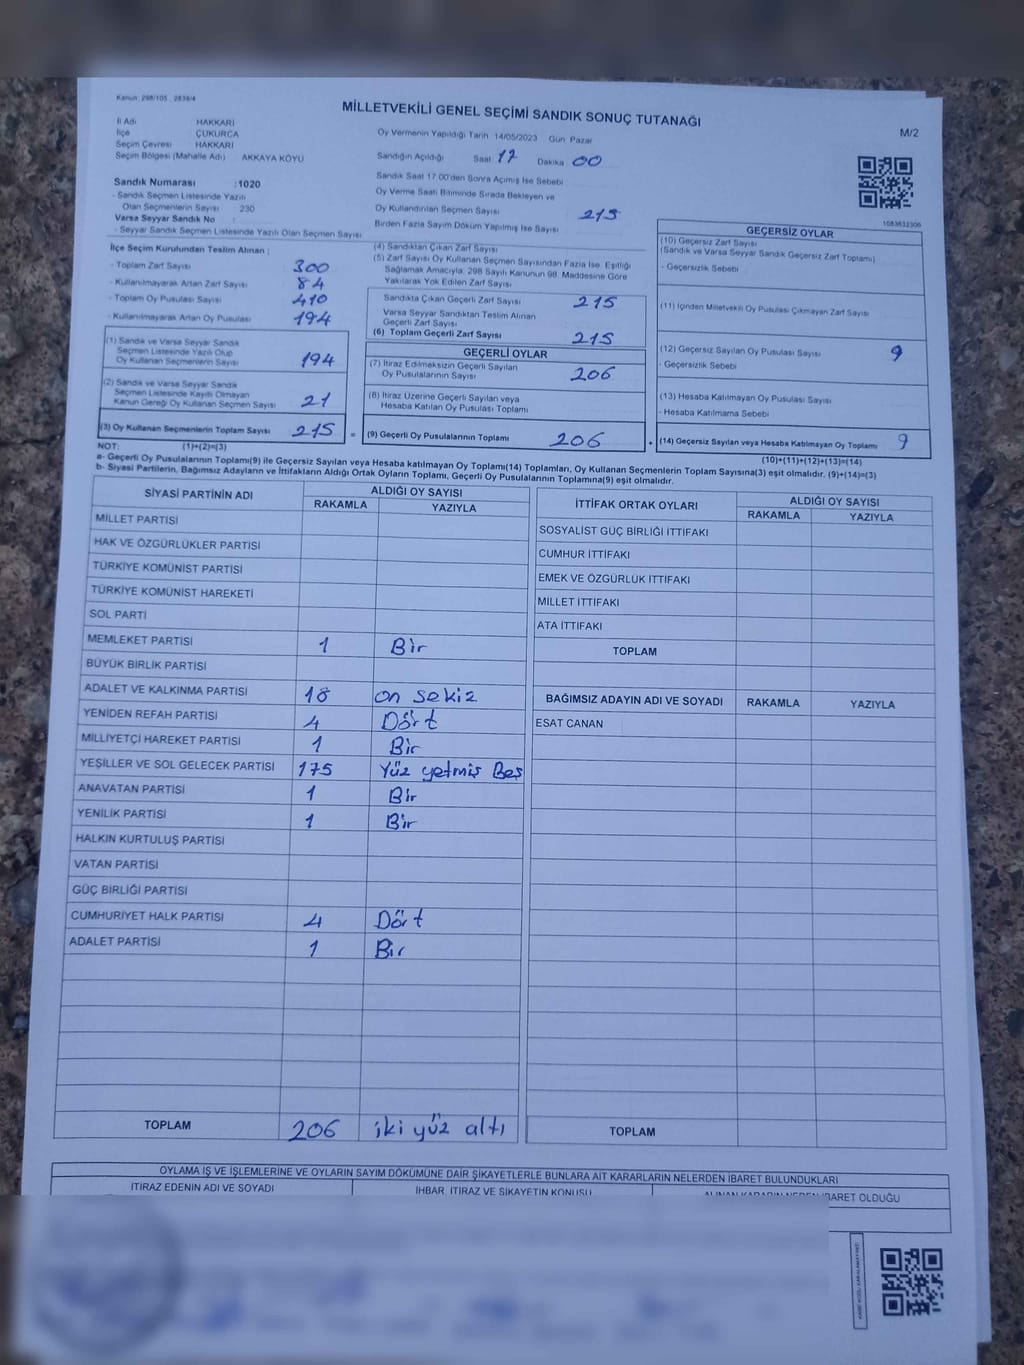 Kanun: 298/105 , 2839/4
MİLLETVEKİLİ GENEL SEÇİMİ SANDIK SONUÇ TUTANAĞI
M/2
İl Adı HAKKARİ
İlçe ÇUKURCA
Seçim Çevresi HAKKARİ
Seçim Bölgesi (Mahalle Adı) AKKAYA KÖYÜ
Sandık Numarası :1020
- Sandık Seçmen Listesinde Yazılı
Olan Seçmenlerin Sayısı : 230
Varsa Seyyar Sandık No :
- Seyyar Sandık Seçmen Listesinde Yazılı Olan Seçmen Sayısı
Oy Vermenin Yapıldığı Tarih 14/05/2023 Gün Pazar
Sandığın Açıldığı Saat 17 Dakika 00
Sandık Saat 17.00'den Sonra Açılmış İse Sebebi
Oy Verme Saati Bitiminde Sırada Bekleyen ve
Oy Kullandırılan Seçmen Sayısı 215
Birden Fazla Sayım Döküm Yapılmış İse Sayısı
İlçe Seçim Kurulundan Teslim Alınan :
- Toplam Zarf Sayısı 300
- Kullanılmayarak Artan Zarf Sayısı 84
- Toplam Oy Pusulası Sayısı 410
- Kullanılmayarak Artan Oy Pusulası 194
(1) Sandık ve Varsa Seyyar Sandık
Seçmen Listesinde Yazılı Olup
Oy Kullanan Seçmenlerin Sayısı 194
(2) Sandık ve Varsa Seyyar Sandık
Seçmen Listesinde Kayıtlı Olmayan
Kanun Gereği Oy Kullanan Seçmen Sayısı 21
(3) Oy Kullanan Seçmenlerin Toplam Sayısı 215
(4) Sandıktan Çıkan Zarf Sayısı
(5) Zarf Sayısı Oy Kullanan Seçmen Sayısından Fazla İse, Eşitliği
Sağlamak Amacıyla, 298 Sayılı Kanunun 98. Maddesine Göre
Yakılarak Yok Edilen Zarf Sayısı
Sandıkta Çıkan Geçerli Zarf Sayısı 215
Varsa Seyyar Sandıktan Teslim Alınan
Geçerli Zarf Sayısı
(6) Toplam Geçerli Zarf Sayısı 215
GEÇERLİ OYLAR
(7) İtiraz Edilmeksizin Geçerli Sayılan
Oy Pusulalarının Sayısı 206
(8) İtiraz Üzerine Geçerli Sayılan veya
Hesaba Katılan Oy Pusulası Toplamı
= (9) Geçerli Oy Pusulalarının Toplamı 206
GEÇERSİZ OYLAR
(10) Geçersiz Zarf Sayısı
(Sandık ve Varsa Seyyar Sandık Geçersiz Zarf Toplamı)
- Geçersizlik Sebebi
(11) İçinden Milletvekili Oy Pusulası Çıkmayan Zarf Sayısı
(12) Geçersiz Sayılan Oy Pusulası Sayısı 9
- Geçersizlik Sebebi
(13) Hesaba Katılmayan Oy Pusulası Sayısı
- Hesaba Katılmama Sebebi
+ (14) Geçersiz Sayılan veya Hesaba Katılmayan Oy Toplamı 9
NOT: (1)+(2)=(3)
(10)+(11)+(12)+(13)=(14)
a- Geçerli Oy Pusulalarının Toplamı(9) ile Geçersiz Sayılan veya Hesaba katılmayan Oy Toplamı(14) Toplamları, Oy Kullanan Seçmenlerin Toplam Sayısına(3) eşit olmalıdır. (9)+(14)=(3)
b- Siyasi Partilerin, Bağımsız Adayların ve İttifakların Aldığı Ortak Oyların Toplamı, Geçerli Oy Pusulalarının Toplamına(9) eşit olmalıdır.
SİYASİ PARTİNİN ADI ALDIĞI OY SAYISI
RAKAMLA YAZIYLA
MİLLET PARTİSİ
HAK VE ÖZGÜRLÜKLER PARTİSİ
TÜRKİYE KOMÜNİST PARTİSİ
TÜRKİYE KOMÜNİST HAREKETİ
SOL PARTİ
MEMLEKET PARTİSİ 1 Bir
BÜYÜK BİRLİK PARTİSİ
ADALET VE KALKINMA PARTİSİ 18 on sekiz
YENİDEN REFAH PARTİSİ 4 Dört
MİLLİYETÇİ HAREKET PARTİSİ 1 Bir
YEŞİLLER VE SOL GELECEK PARTİSİ 175 Yüz yetmiş Beş
ANAVATAN PARTİSİ 1 Bir
YENİLİK PARTİSİ 1 Bir
HALKIN KURTULUŞ PARTİSİ
VATAN PARTİSİ
GÜÇ BİRLİĞİ PARTİSİ
CUMHURİYET HALK PARTİSİ 4 Dört
ADALET PARTİSİ 1 Bir
TOPLAM 206 iki yüz altı
İTTİFAK ORTAK OYLARI ALDIĞI OY SAYISI
RAKAMLA YAZIYLA
SOSYALİST GÜÇ BİRLİĞİ İTTİFAKI
CUMHUR İTTİFAKI
EMEK VE ÖZGÜRLÜK İTTİFAKI
MİLLET İTTİFAKI
ATA İTTİFAKI
TOPLAM
BAĞIMSIZ ADAYIN ADI VE SOYADI RAKAMLA YAZIYLA
ESAT CANAN
TOPLAM
OYLAMA İŞ VE İŞLEMLERİNE VE OYLARIN SAYIM DÖKÜMÜNE DAİR ŞİKAYETLERLE BUNLARA AİT KARARLARIN NELERDEN İBARET BULUNDUKLARI
İTİRAZ EDENİN ADI VE SOYADI İHBAR, İTİRAZ VE ŞİKAYETİN KONUSU ALINAN KARARIN NEDEN İBARET OLDUĞU